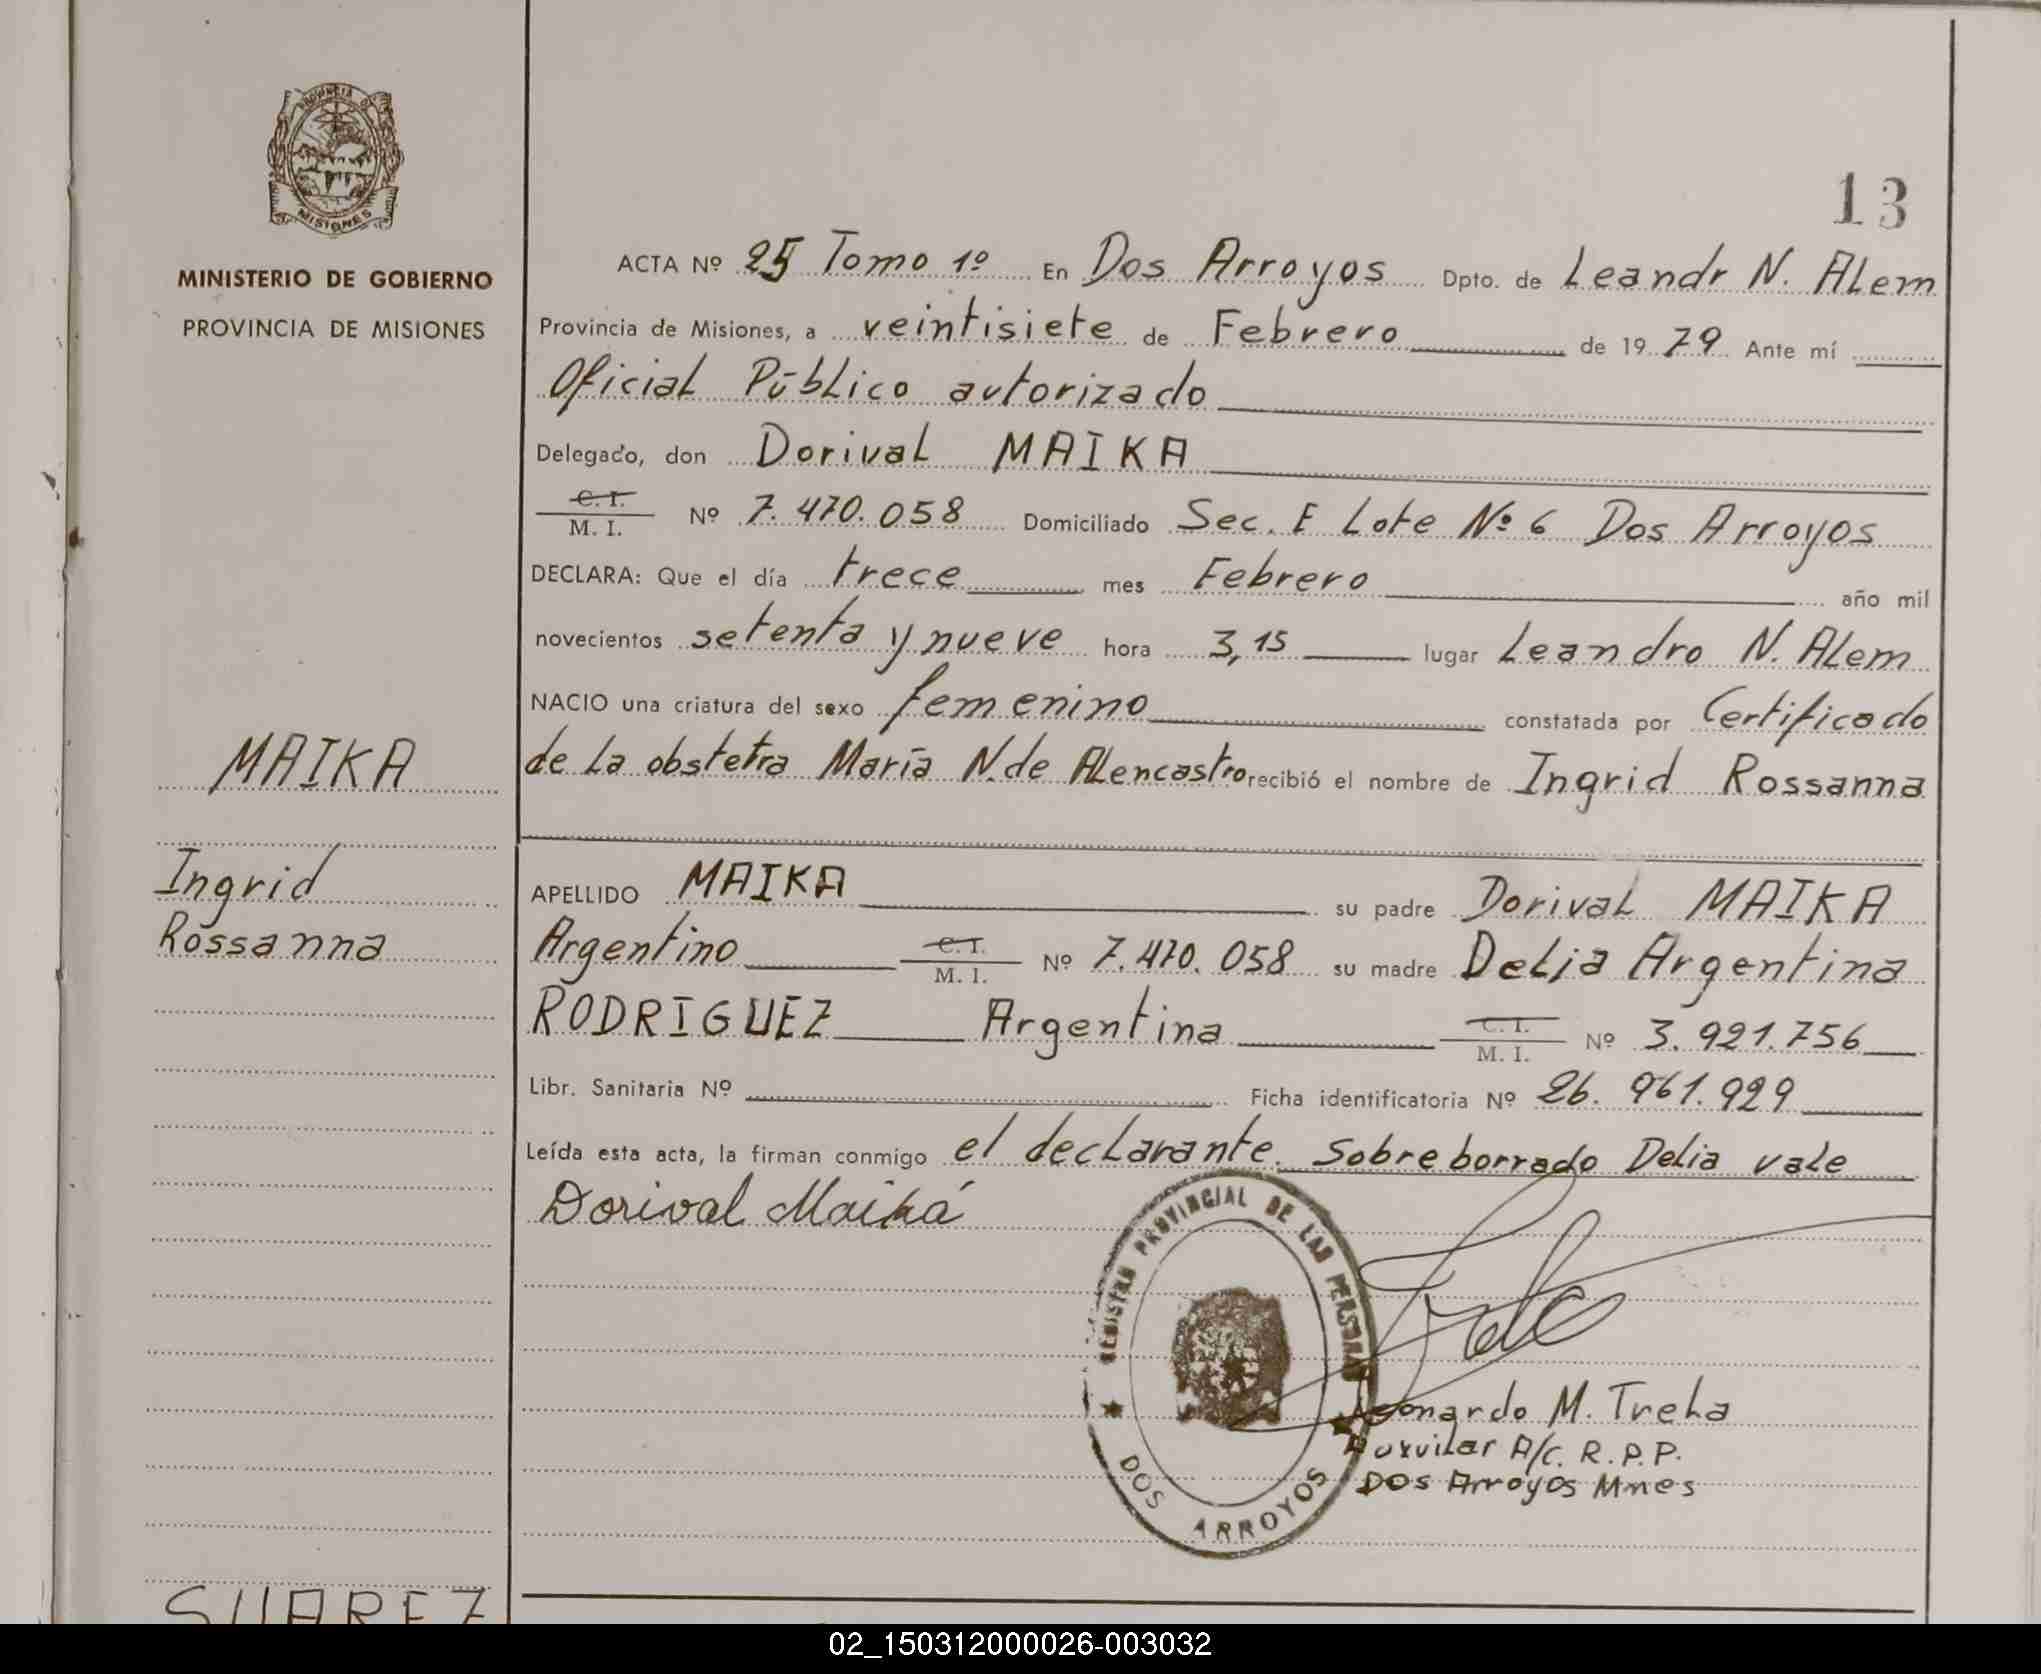 PROVINCIA DE
MISIONES
MINISTERIO DE GOBIERNO
PROVINCIA DE MISIONES
13
ACTA Nº 25 Tomo 1º En Dos Arroyos Dpto. de Leandr N. ALem
Provincia de Misiones, a veintisiete de Febrero de 19 79 Ante mí
Oficial Público autorizado
Delegado, don Dorival MAIKA
C. I.
M. I. Nº 7.470.058 Domiciliado Sec. E Lote Nº 6 Dos Arroyos
DECLARA: Que el día trece mes Febrero año mil
novecientos setenta y nueve hora 3,15 lugar Leandro N. ALem
NACIO una criatura del sexo femenino constatada por Certificado
de la obstetra María N. de ALencastro recibió el nombre de Ingrid Rossanna
MAIKA
Ingrid
Rossanna
APELLIDO MAIKA su padre Dorival MAIKA
Argentino C. I.
M. I. Nº 7.470.058 su madre Delia Argentina
RODRIGUEZ Argentina C. I.
M. I. Nº 3.921.756
Libr. Sanitaria Nº Ficha identificatoria Nº 26.961.929
Leída esta acta, la firman conmigo el declarante. Sobreborrado Delia vale
Dorival Maiká
REGISTRO PROVINCIAL DE LAS PERSONAS
DOS ARROYOS
Leonardo M. Treha
Auxuilar A/C. R.P.P.
Dos Arroyos Mnes
SUAREZ
02_150312000026-003032